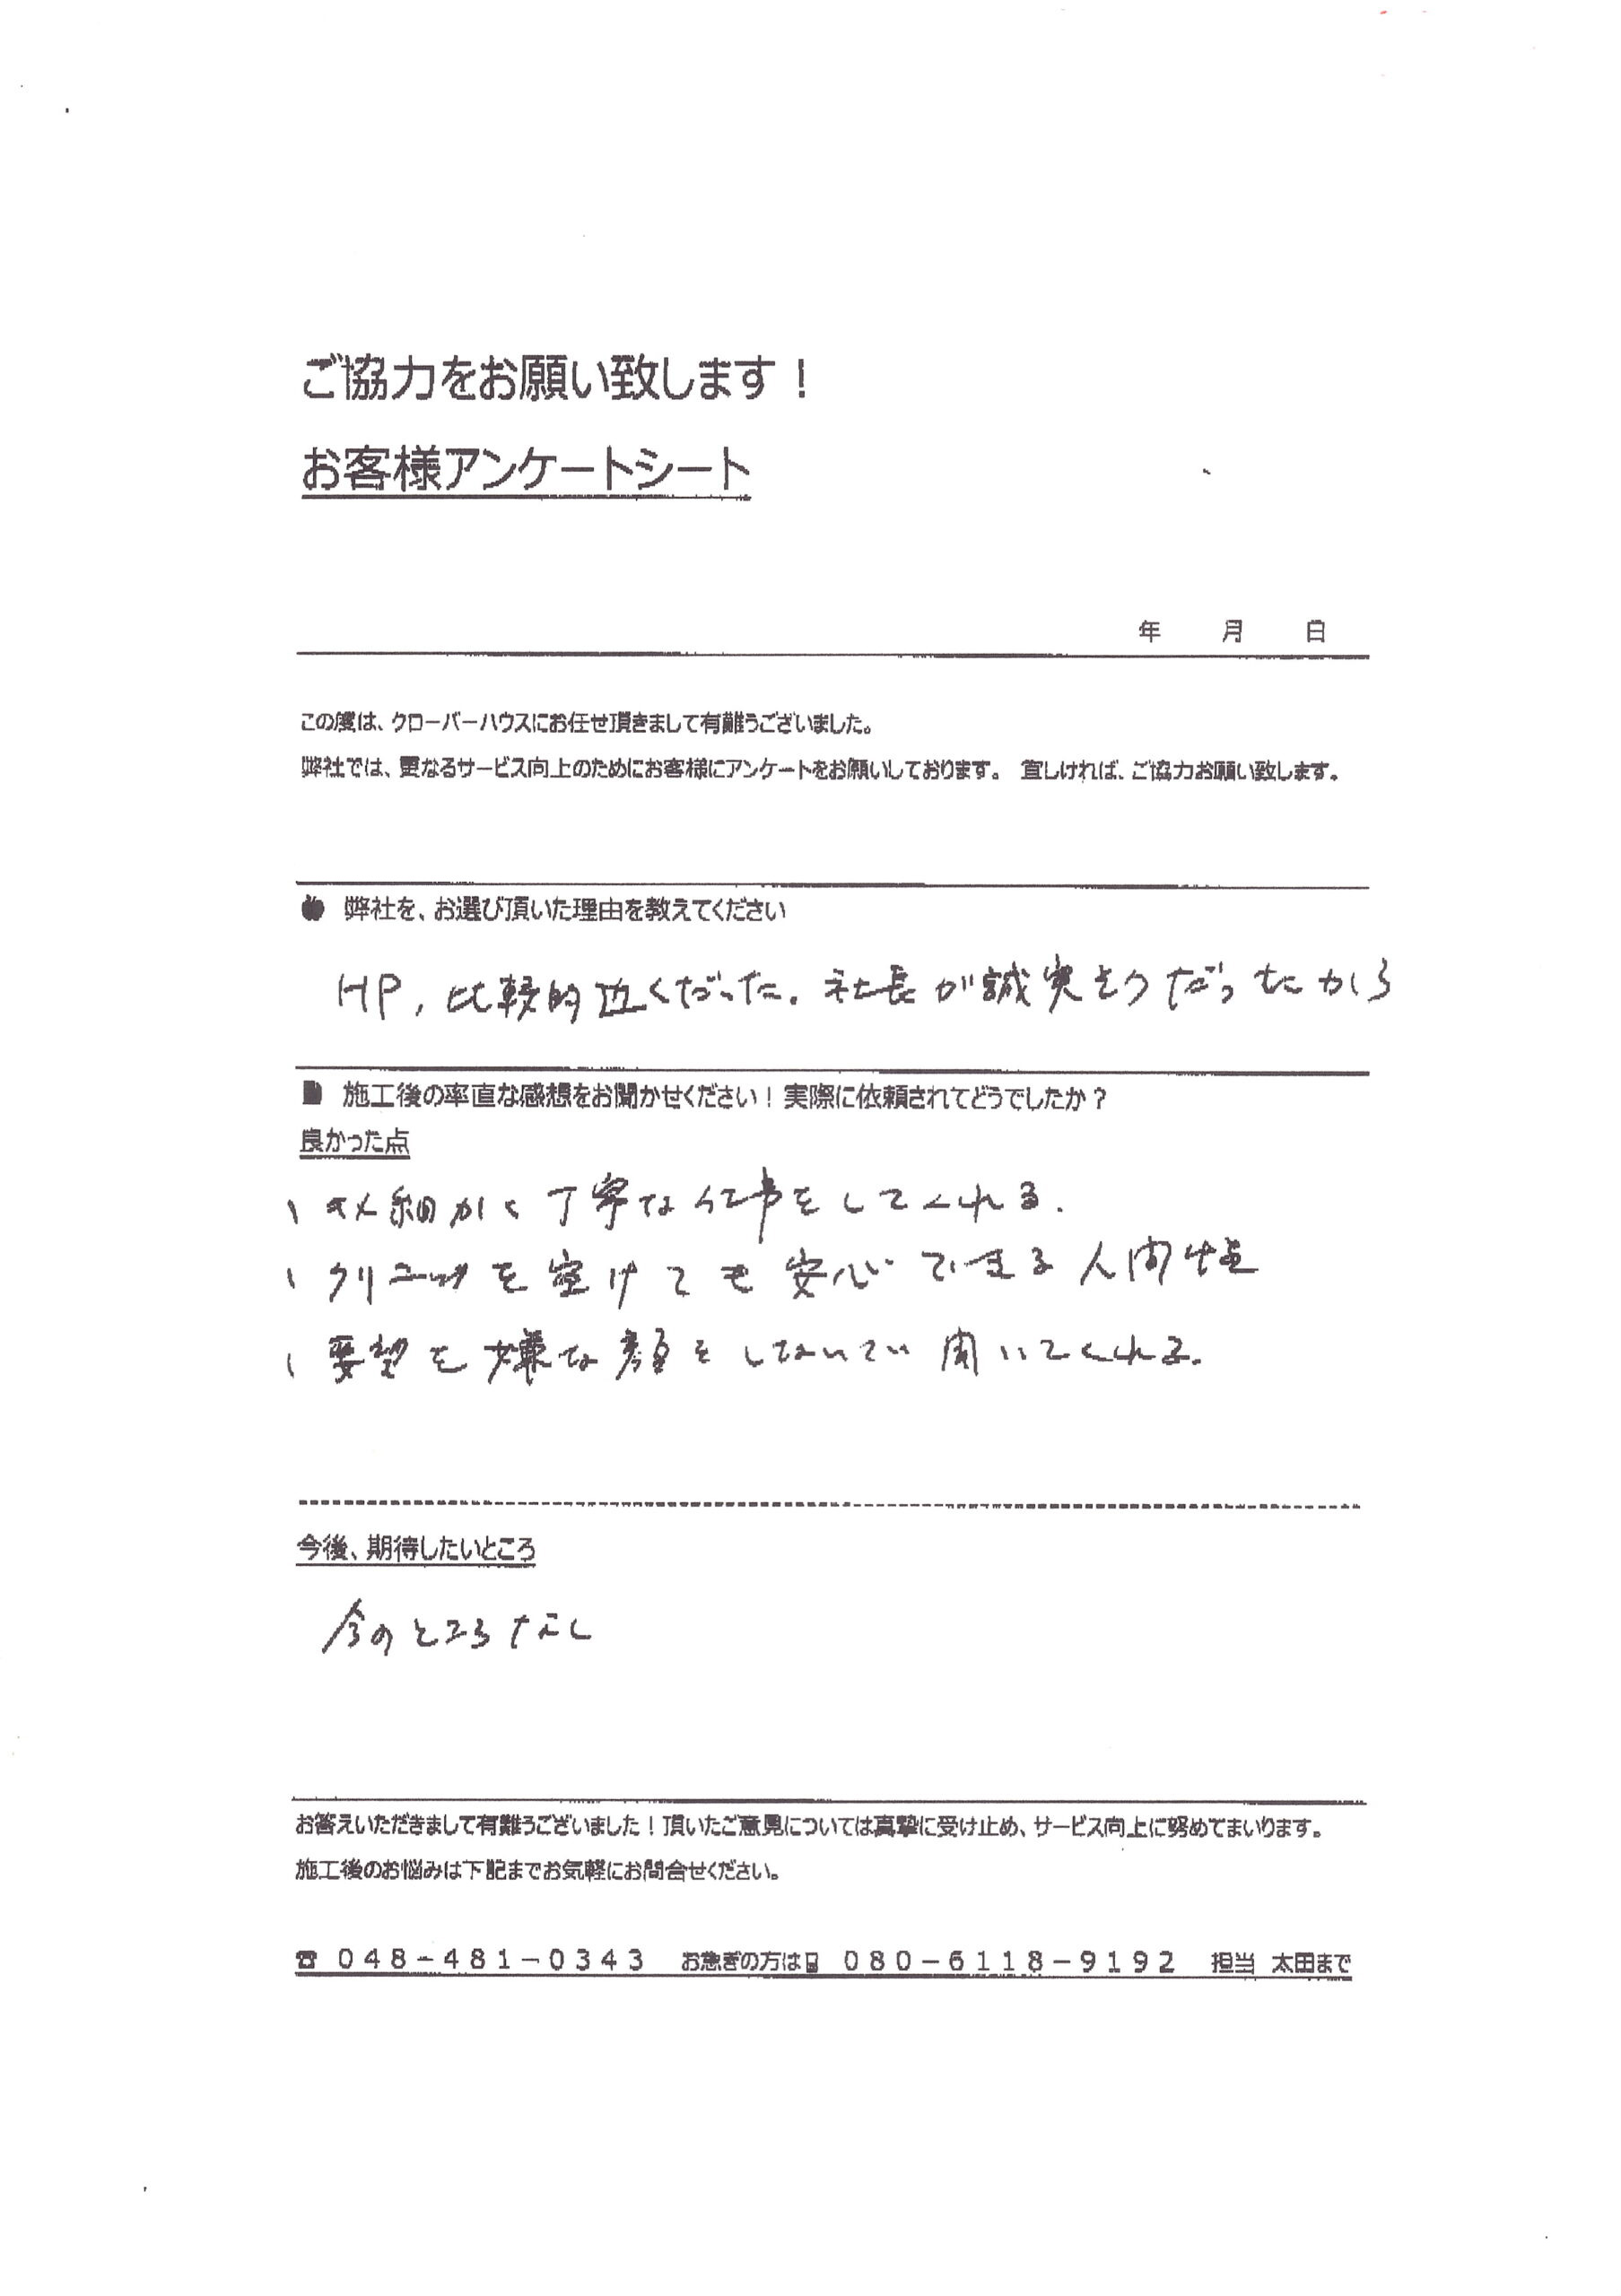 ご協力をお願い致します!
お客様アンケートシート
年 月 日
この度は、クローバーハウスにお任せ頂きまして有難うございました。
弊社では、更なるサービス向上のためにお客様にアンケートをお願いしております。 宜しければ、ご協力お願い致します。
弊社を、お選び頂いた理由を教えてください
HP, 比較的近くだった。社長が誠実そうだったから
施工後の率直な感想をお聞かせください!実際に依頼されてどうでしたか?
良かった点
、きめ細かく丁寧な仕事をしてくれる.
、クリニックを空けても安心できる人間性
、要望を嫌な顔をしないで聞いてくれる.
今後、期待したいところ
今のところなし
お答えいただきまして有難うございました!頂いたご意見については真摯に受け止め、サービス向上に努めてまいります。
施工後のお悩みは下記までお気軽にお問合せください。
☎ 048-481-0343 お急ぎの方は 080-6118-9192 担当 太田まで